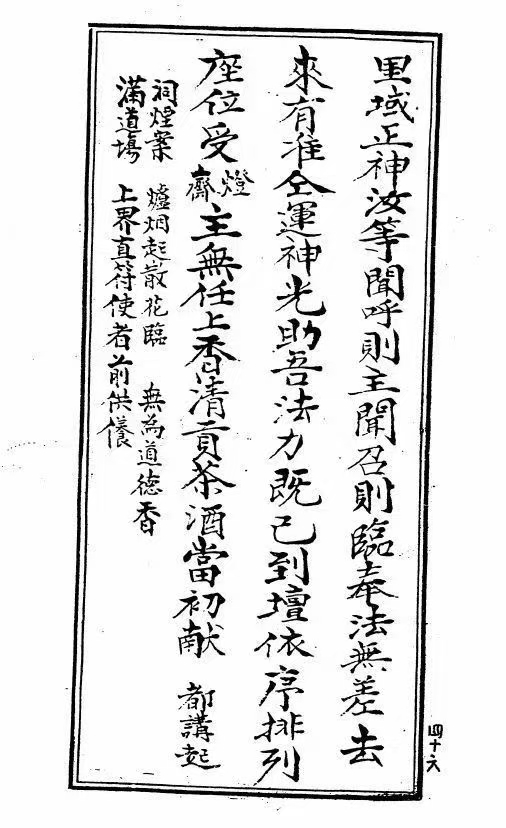 里域正神汝等聞呼則主聞召則臨奉法無差去
來有准仝運神光助吾法力既已到壇依序排列
座位受燈齋主無任上香清貢茶酒當初献 都講起
祠煌案 爐烟起散花臨 無為道德香
滿道塲 上界直符使者前供養
四十六